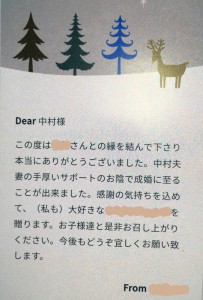 Dear 中村様
この度は さんとの縁を結んで下さり
本当にありがとうございました。中村夫
妻の手厚いサポートのお陰で成婚に至る
ことが出来ました。感謝の気持ちを込め
て、（私も）大好きな を
贈ります。お子様達と是非お召し上がり
ください。今後もどうぞ宜しくお願い致
します。
From